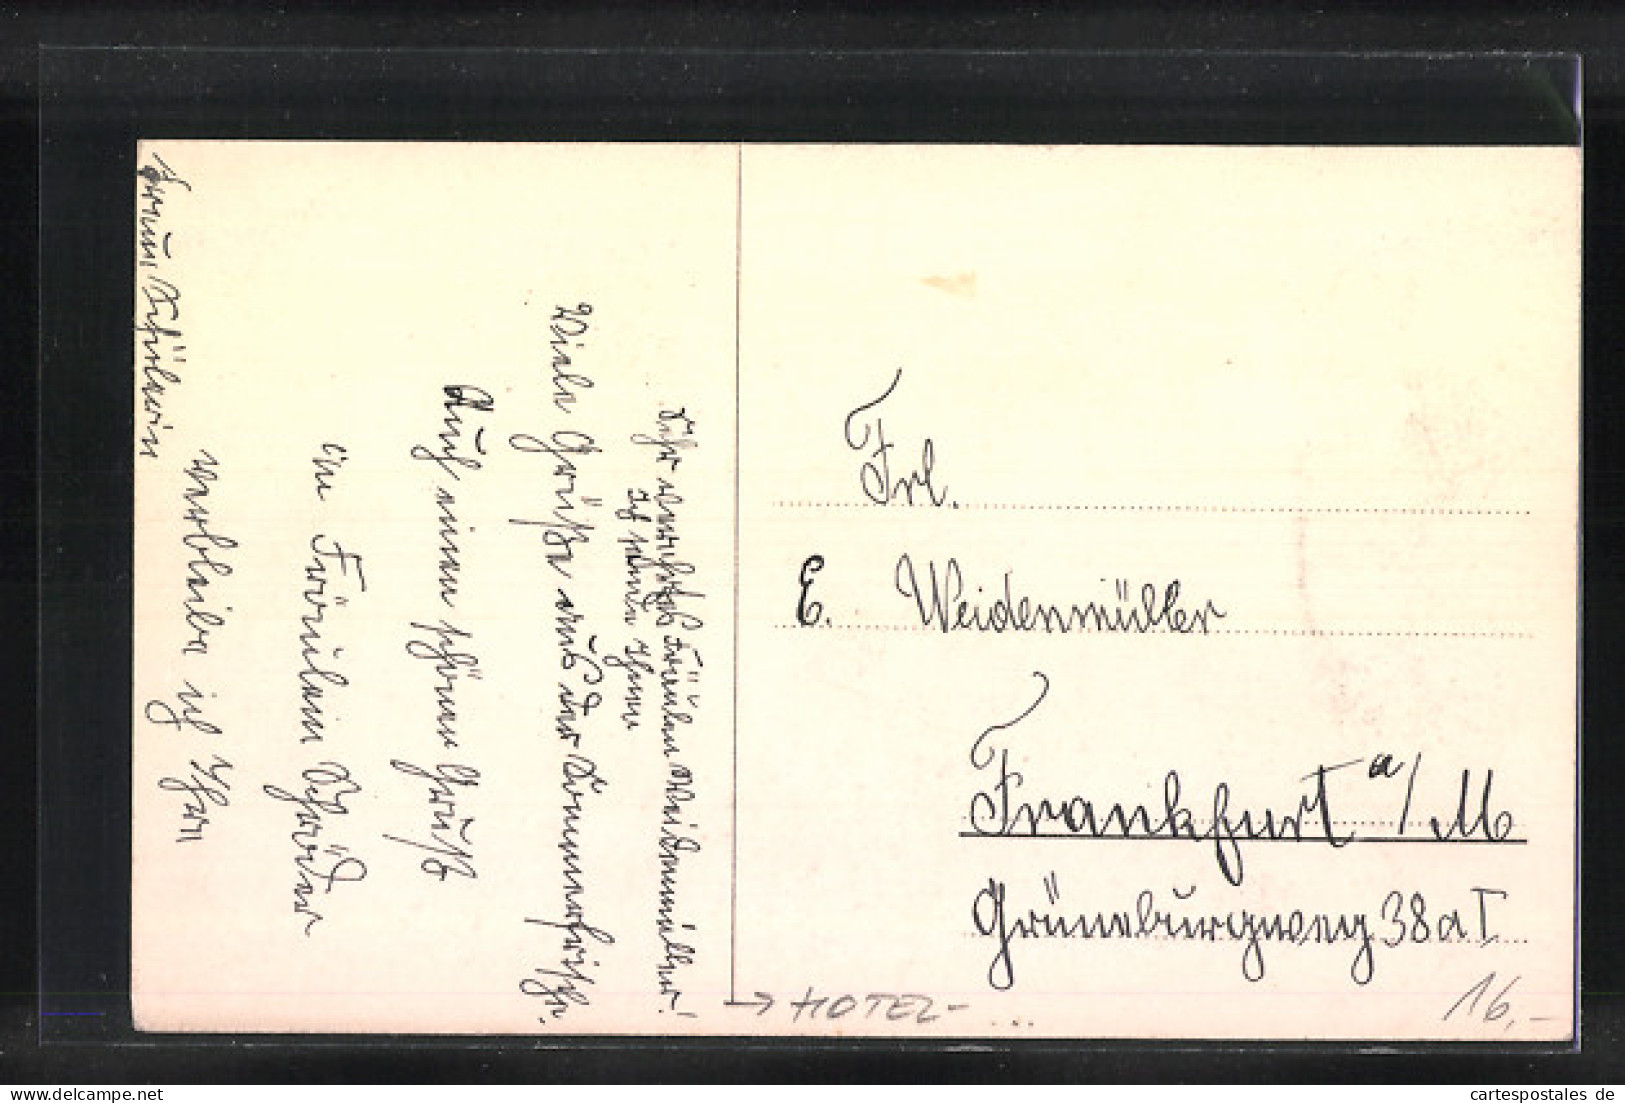 Sehr verehrtes Fräulein Weidenmüller!
Ich sende Ihnen
Viele Grüße aus der Sommerfrische.
Auch einen schönen Gruß
an Fräulein Schröder
verbleibe ich Ihre
Frl.
E. Weidenmüller
Frankfurt a/M
Grüneburgweg 38a I
→ HOTEL- ...
16,-
cartespostales de